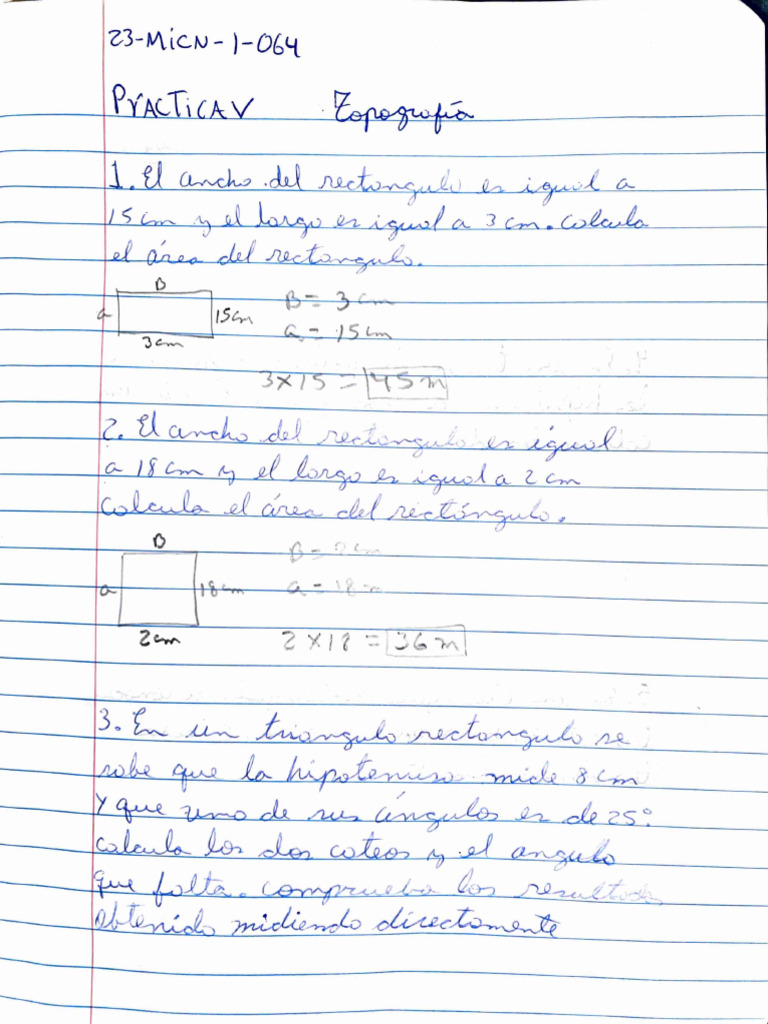 23-MiCN-1-064
PrACTiCA V Topografía
1. El ancho del rectangulo es igual a
15 cm y el largo es igual a 3 cm. Calcula
el área del rectangulo.
B
a 15cm B = 3 cm
3cm a = 15 cm
3x15 = 45 m
2. El ancho del rectangulo es igual
a 18 cm y el largo es igual a 2 cm
Calcula el área del rectángulo.
B B = 2 cm
a 18cm a = 18 m
2cm 2 x 18 = 36 m
3. En un triangulo rectangulo se
sabe que la hipotenusa mide 8 cm
Y que uno de sus ángulos es de 25°
calcula los dos cateos y el angulo
que falta. comprueba los resultados
obtenido midiendo directamente